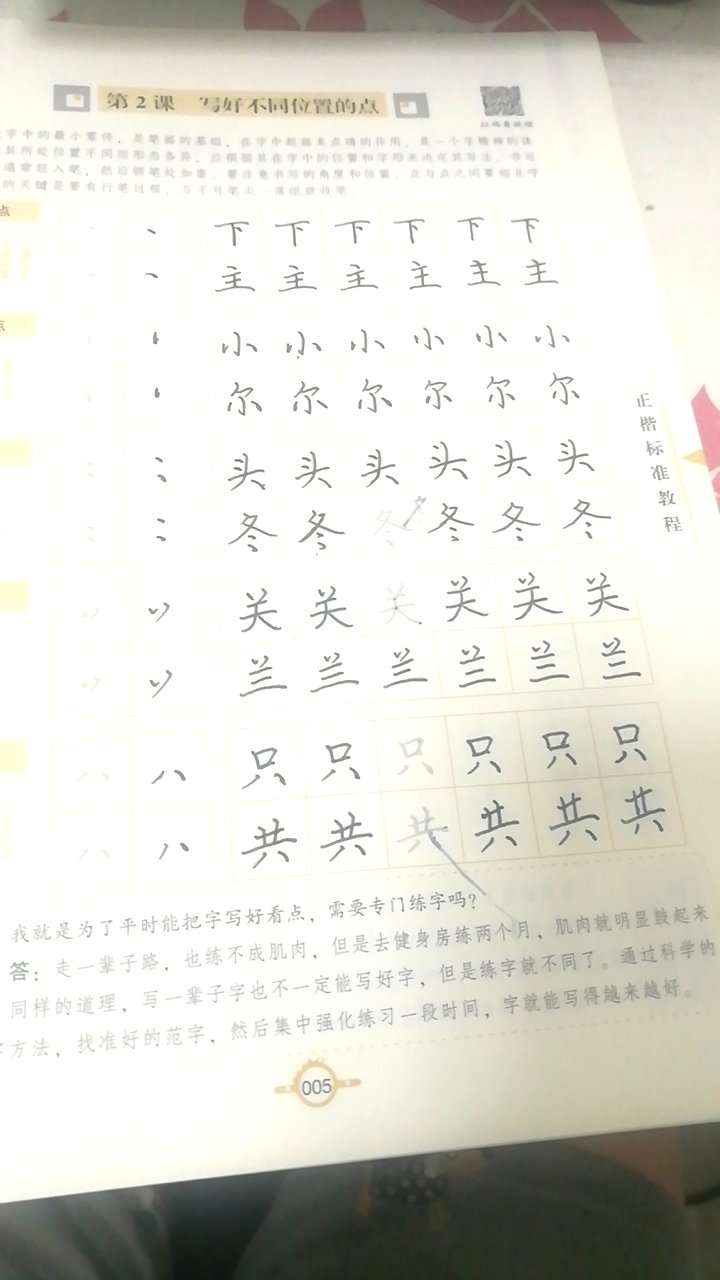 第2课 写好不同位置的点
扫码看视频
字中的最小零件，是笔画的基础，在字中起画龙点睛的作用，是一个字精神的体
其所处位置不同而形态各异，应根据其在字中的位置和字形来决定其写法。书写
通常轻入笔，然后顿笔处加重。要注意书写的角度和位置，点与点之间要相互呼
的关键是要有行笔过程，万不可笔尖一落纸就收笔。
点
下 下 下 下 下 下
主 主 主 主 主 主
点
小 小 小 小 小 小
尔 尔 尔 尔 尔 尔
头 头 头 头 头 头
冬 冬 冬 冬 冬 冬
关 关 关 关 关 关
兰 兰 兰 兰 兰 兰
只 只 只 只 只 只
共 共 共 共 共 共
正楷标准教程
我就是为了平时能把字写好看点，需要专门练字吗？
答：走一辈子路，也练不成肌肉，但是去健身房练两个月，肌肉就明显鼓起来
同样的道理，写一辈子字也不一定能写好字，但是练字就不同了。通过科学的
字方法，找准好的范字，然后集中强化练习一段时间，字就能写得越来越好。
005